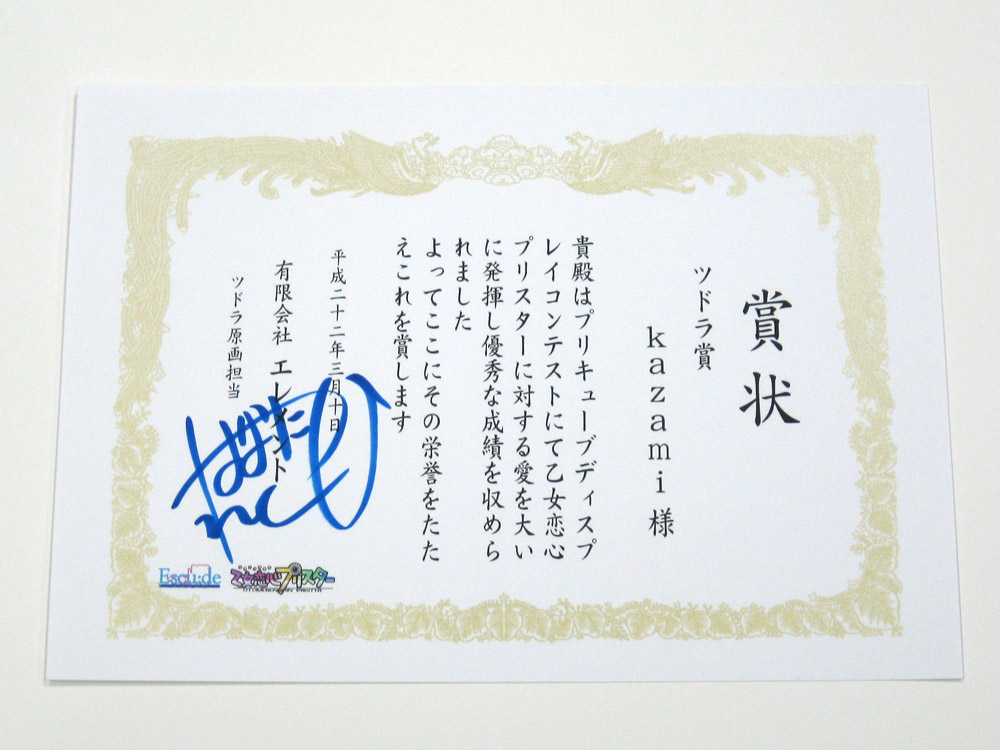 賞状
kazami様
ツドラ賞
貴殿はプリキューブディスプ
レイコンテストにて乙女恋心
プリスターに対する愛を大い
に発揮し優秀な成績を収めら
れました
よってここにその栄誉をたた
えこれを賞します
平成二十二年三月十日
有限会社 エレメント
ツドラ原画担当
Escu:de
乙女恋心プリスター